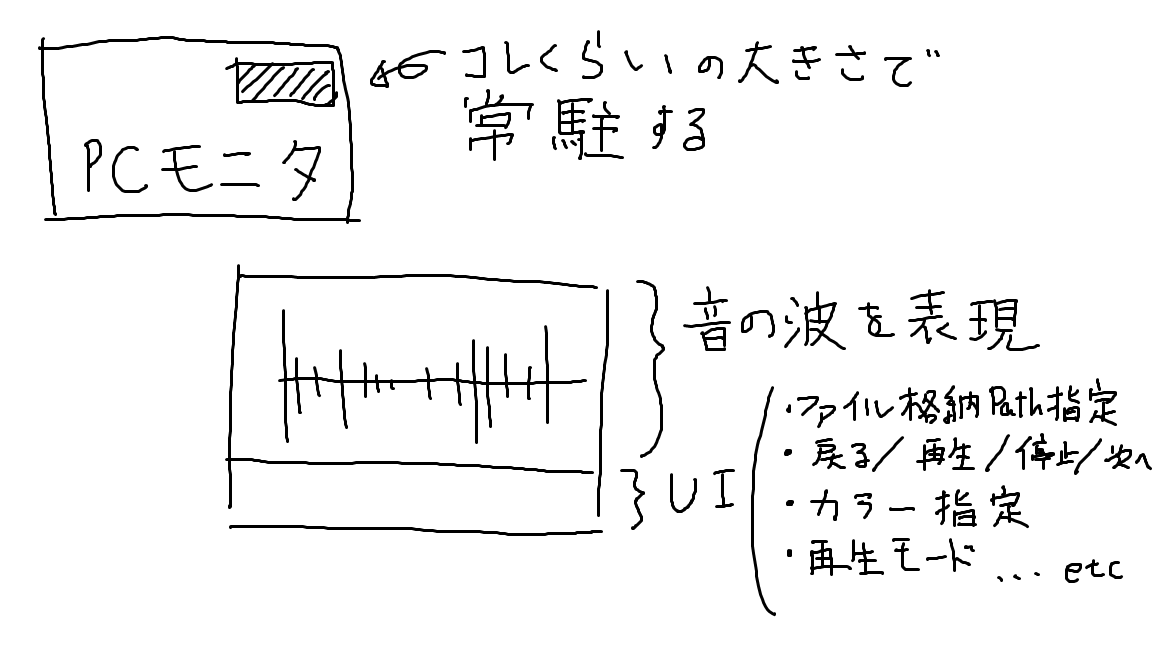 コレくらいの大きさで
常駐する
PCモニタ
音の波を表現
UI
・ファイル格納Path指定
・戻る/再生/停止/次へ
・カラー指定
・再生モード...etc